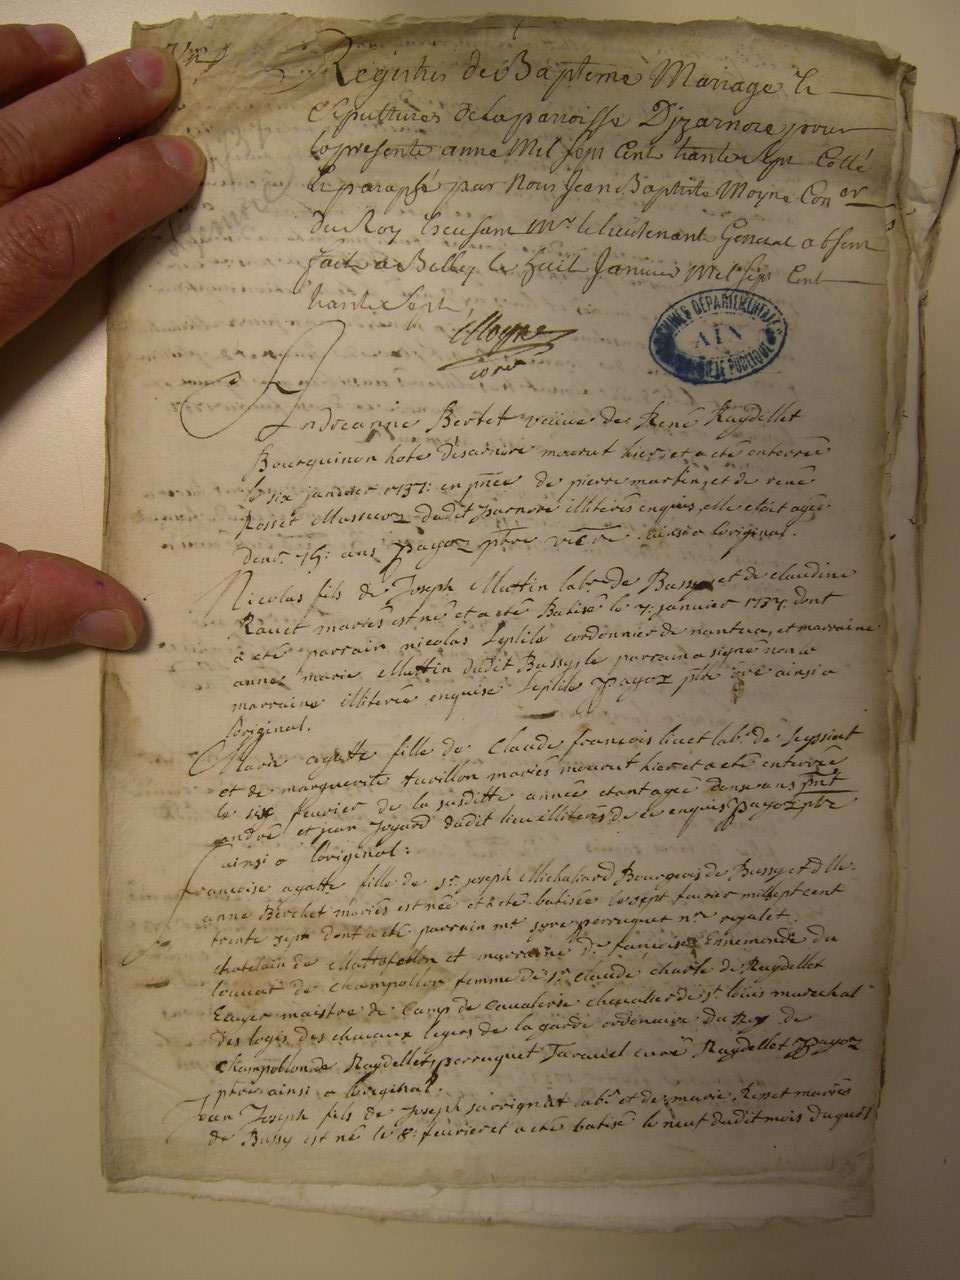 Registres de Bapteme Mariage et
Sepultures de la paroisse Djzarnore pour
la presente anné Mil sept Cent trante sept Cotté
et paraphé par Nous Jean Baptiste Moyne Con er
du Roy Mr le lieutenant General absent
fait a Belley le huit Janvier Mil sept Cent
trante sept
Moyne
ARCHIVES DÉPARTEMENTALES
AIN
Andreanne Bertet veuve de René Raydellet
Bourguinon hote d'isarnore mourut hier et a eté enterrée
le six janvier 1737: en pñce de pierre martin et de rené
Rosset dudit isarnore illiterés enquis, elle etoit agée
denv. 75: ans payoz ptre vicre ainsi a loriginal.
Nicolas fils de Joseph Mattin labr. de Bussy et de claudine
Ravet mariés est né et a eté Batisé le 7: janvier 1737 dont
a eté parrain nicolas cordonnier de nantua, et marraine
anne marie Mattin dudit Bussy, le parrain a signé non la
marraine illiterée enquise payoz ptre ainsi a
l'original.
Marie agatte fille de Claude francois livet labr. de
et de marguerite tavillon mariés mourut hier et a eté enterrée
le six fevrier de la susditte année etant agée ans pñt
andré et jean Joyard dudit lieu illiterés de ce enquis payoz ptre
ainsi a l'original:
francoise agatte fille de sr. joseph Michaliard Bourgeois de Bussy et dlle
anne Berchet mariés est née et a eté batisée le sept fevrier mil sept cent
trente sept dont a eté parrain mt. perruquet nre royal et
chatelain de Mattafellon et marraine de. francoise Ennemonde du
louvat de champollon femme de sr. claude charle de Raydellet
Ecuyer maistre de Camp de Cavalerie chevalier de st. louis marechal
des logis des chevaux legers de la garde ordinaire du Roy de
Champollon de Raydellet, perruquet curé Raydellet payoz
ptre ainsi a l'original.
Jean Joseph fils de Joseph labr. et de marie mariés
de Bussy est né le 8: fevrier et a eté batisé le neuf dudit mois duquel